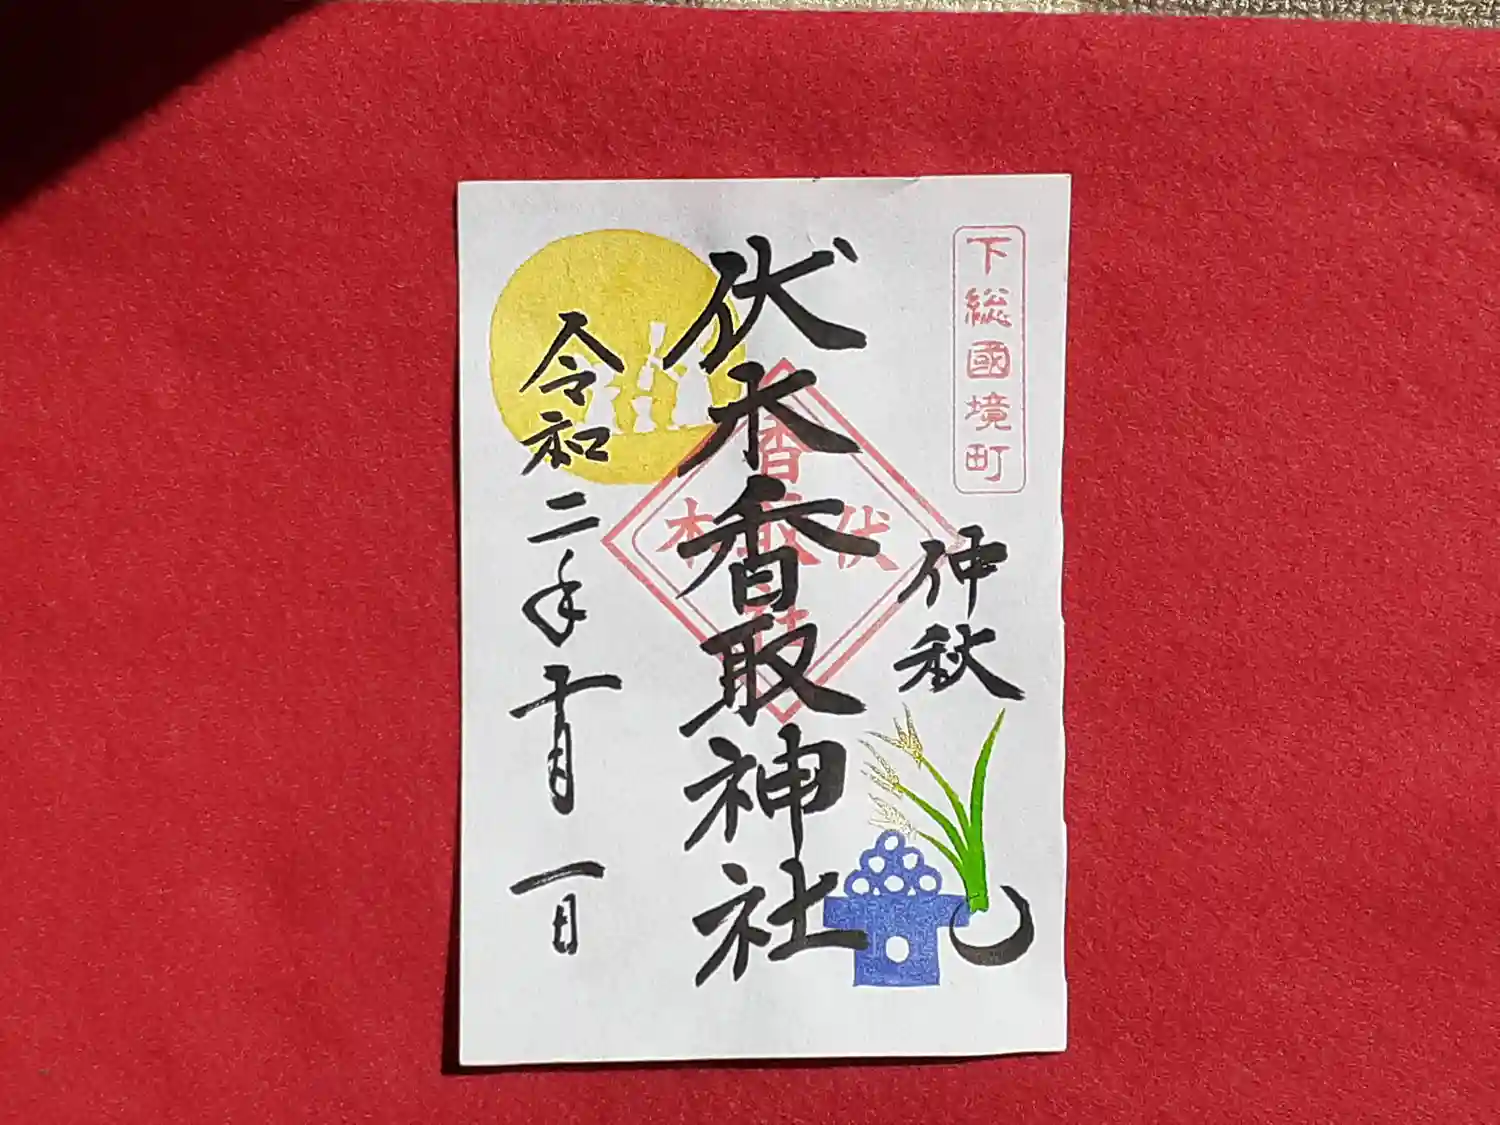 下総國境町
仲秋
伏木香取神社
伏木
香取
令和二年十月一日